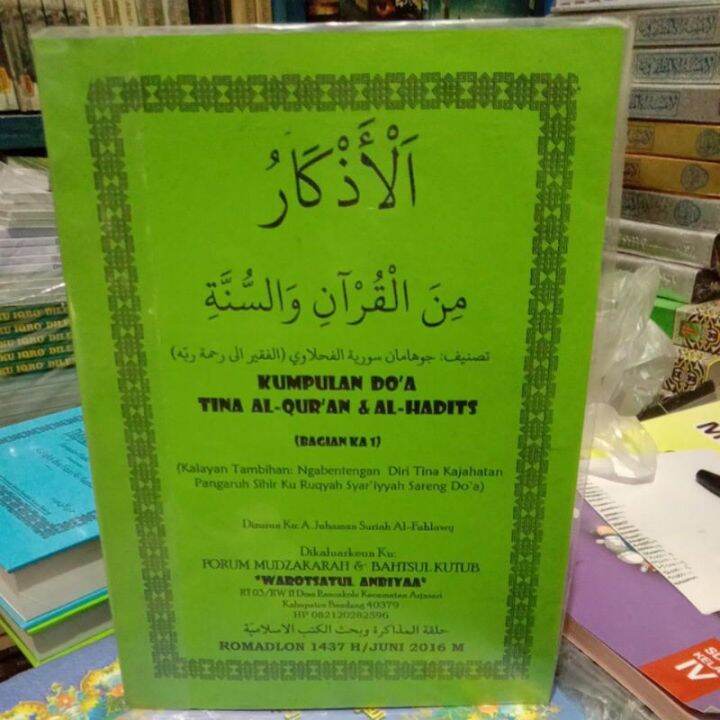 اَلْأَذْكَارُ
مِنَ الْقُرْآنِ وَالسُّنَّةِ
تصنيف: جوهامان سورية الفحلاوي (الفقير الى رحمة ربّه)
KUMPULAN DO'A
TINA AL-QUR'AN & AL-HADITS
(BAGIAN KA 1)
(Kalayan Tambihan: Ngabentengan Diri Tina Kajahatan
Pangaruh Sihir Ku Ruqyah Syar'iyyah Sareng Do'a)
Disusun Ku: A. Juhaman Suriah Al-Fahlawy
Dikaluarkeun Ku:
FORUM MUDZAKARAH & BAHTSUL KUTUB
"WAROTSATUL ANBIYAA"
RT 03/RW 11 Desa Rancakole Kecamatan Arjasari
Kabupaten Bandung 40379
HP 082120282596
حلقة المذاكرة وبحث الكتب الاسلاميّة
ROMADLON 1437 H/JUNI 2016 M
IV